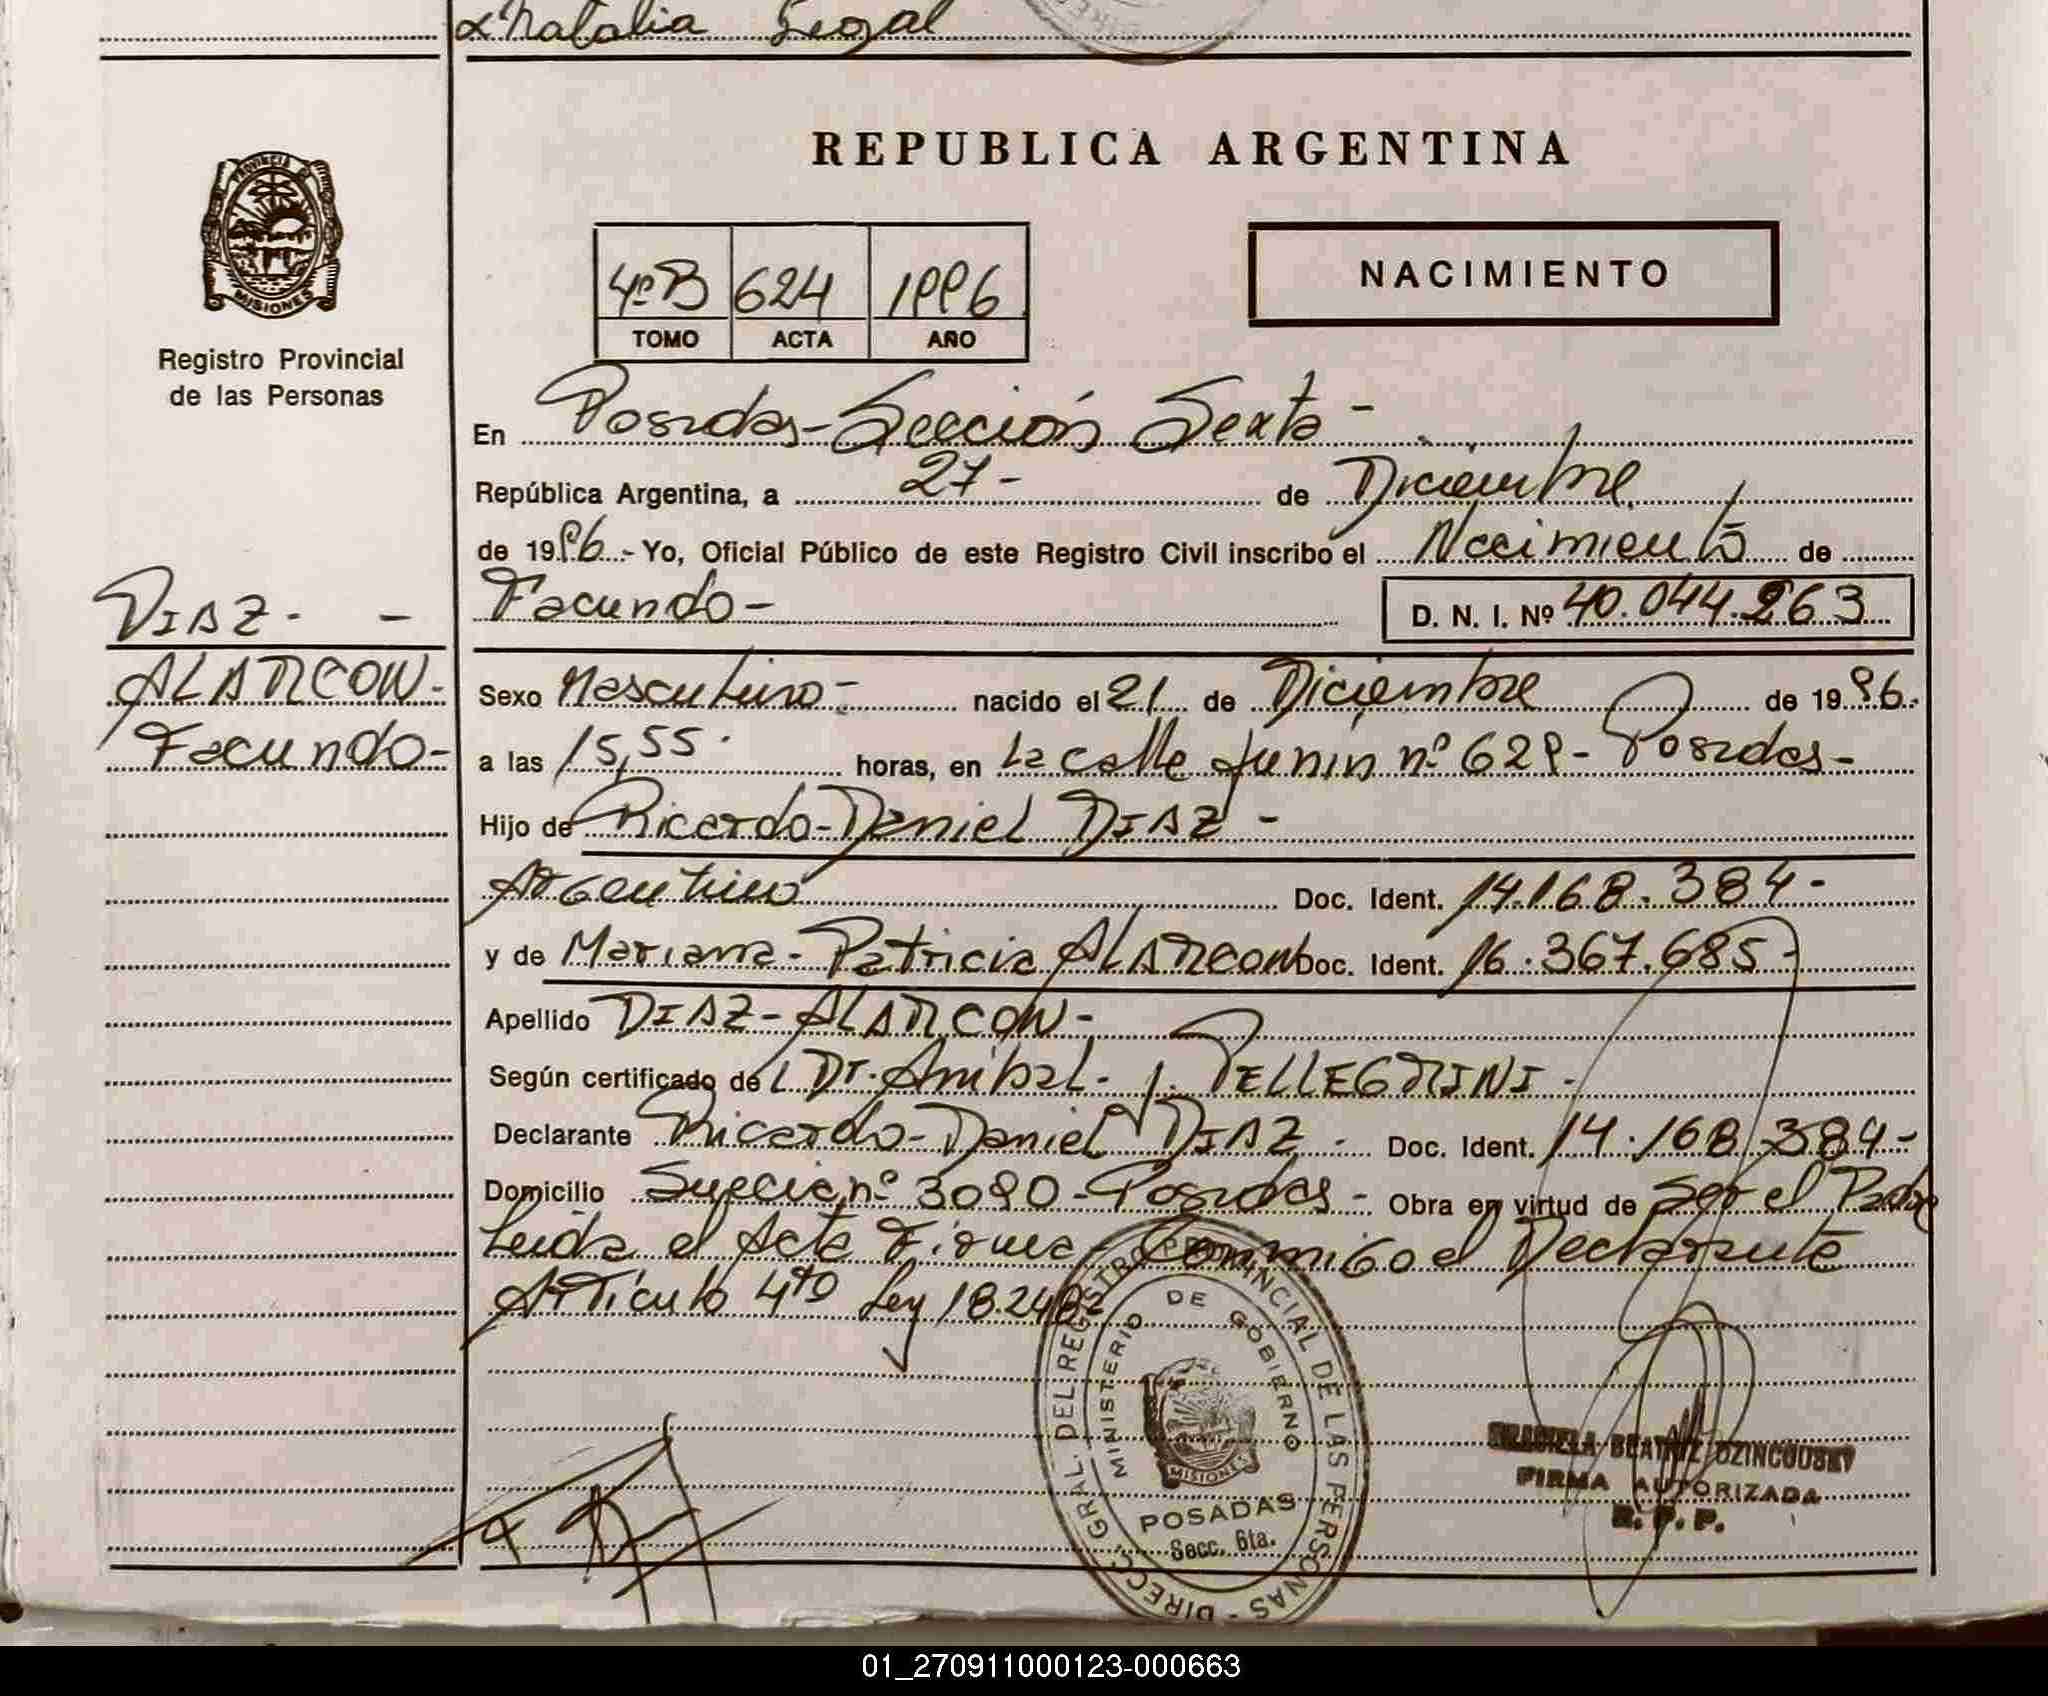 Natalia Segal
REPUBLICA ARGENTINA
PROVINCIA
MISIONES
Registro Provincial
de las Personas
4ºB 624 1996
TOMO ACTA AÑO
NACIMIENTO
En Posadas-Sección Sexta-
República Argentina, a 27- de Diciembre
de 1996.- Yo, Oficial Público de este Registro Civil inscribo el Nacimiento de
Facundo- D. N. I. Nº 40.044.263
DIAZ- -
ALARCON-
Facundo-
Sexo Masculino- nacido el 21 de Diciembre de 1996.
a las 15,55. horas, en la calle Junín nº 629- Posadas-
Hijo de Ricardo-Daniel DIAZ -
Argentino Doc. Ident. 14.168.384-
y de Mariana-Patricia ALARCON Doc. Ident. 16.367.685-
Apellido DIAZ-ALARCON-
Según certificado de Dr. Aníbal- J. PELLEGRINI-
Declarante Ricardo-Daniel DIAZ- Doc. Ident. 14.168.384-
Domicilio Suecia nº 3090-Posadas- Obra en virtud de Ser el Padre
Leida el Acta Firma- Conmigo el Declarante
Artículo 4to Ley 18.248
DIRECC. GRAL. DEL REGISTRO PROVINCIAL DE LAS PERSONAS -
MINISTERIO DE GOBIERNO
MISIONES
POSADAS
Secc. 6ta.
GRACIELA BEATRIZ OZINCOUSKY
FIRMA AUTORIZADA
R. P. P.
01_270911000123-000663